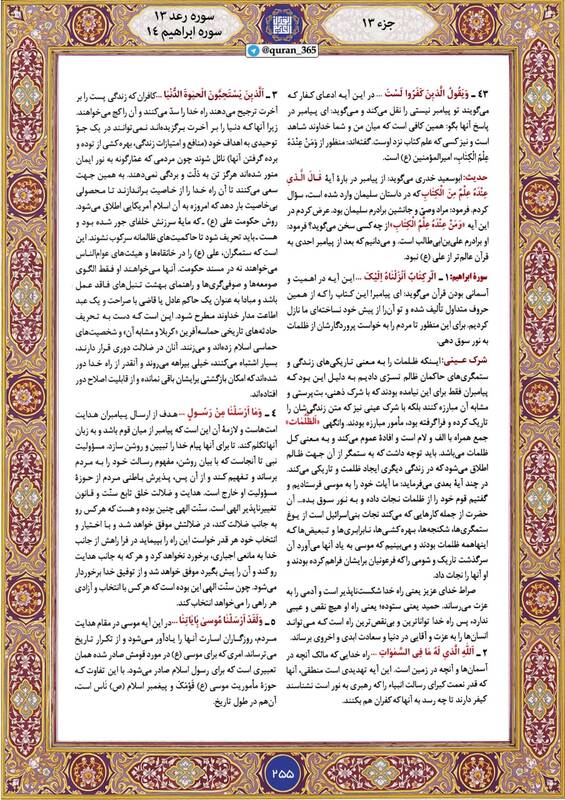 جزء ۱۳
سوره رعد ۱۳
سوره ابراهیم ۱۴
@quran_365
۴۳ ـ وَیَقُولُ الَّذِینَ کَفَرُوا لَسْتَ ... در این آیه ادعای کفار که
می‌گویند تو پیامبر نیستی را نقل می‌کند و می‌گوید: ای پیامبر در
پاسخ آنها بگو: همین کافی است که میان من و شما خداوند شاهد
است و نیز کسی که علم کتاب نزد اوست. گفته‌اند: منظور از وَمَنْ عِنْدَهُ
عِلْمُ الْکِتَابِ، امیرالمؤمنین (ع) است.
حدیث: ابوسعید خدری می‌گوید: از پیامبر در بارهٔ آیهٔ قَالَ الَّذِي
عِنْدَهُ عِلْمٌ مِنَ الْکِتَابِ که در داستان سلیمان وارد شده است، سؤال
کردم. فرمود: مراد وصیّ و جانشین برادرم سلیمان بود. عرض کردم در
این آیه «وَمَنْ عِنْدَهُ عِلْمُ الْکِتَابِ» از چه کسی سخن می‌گوید؟ فرمود:
او برادرم علی‌بن‌ابی‌طالب است. و می‌دانیم که بعد از پیامبر احدی به
قرآن عالم‌تر از علی (ع) نبود.
سورهٔ ابراهیم: ۱ ـ الر کِتَابٌ أَنْزَلْنَاهُ إِلَیْکَ ... این آیه در اهمیت و
آسمانی بودن قرآن می‌گوید: ای پیامبر! این کتاب را که از همین
حروف متداول تألیف شده و تو آن‌را از پیش خود نساخته‌ای ما نازل
کردیم. برای این منظور تا مردم را به خواست پروردگارشان از ظلمات
به نور سوق دهی.
شرک عینی: اینکه ظلمات را به معنی تاریکی‌های زندگی و
ستمگری‌های حاکمان ظالم تسرّی دادیم به دلیل این بود که
پیامبران فقط برای این نیامده بودند که با شرک ذهنی، بت‌پرستی و
مشابه آن مبارزه کنند بلکه با شرک عینی نیز که متن زندگی‌شان را
تاریک کرده و فراگرفته بود، مأمور مبارزه بودند. وانگهی «الظُّلُمَات»
جمع همراه با الف و لام است و افادهٔ عموم می‌کند و به معنی کل
ظلمات می‌باشد. باید توجه داشت که به ستمگر از آن جهت ظالم
اطلاق می‌شود که در زندگی دیگری ایجاد ظلمت و تاریکی می‌کند.
در چند آیهٔ بعدی می‌فرماید: ما آیات خود را به موسی فرستادیم و
گفتیم قوم خود را از ظلمات نجات داده و به نور سوق بده... آن
حضرت از جمله کارهایی که می‌کند نجات بنی‌اسرائیل است از یوغ
ستمگری‌ها، شکنجه‌ها، بهره‌کشی‌ها، نابرابری‌ها و تبعیض‌ها که
اینها‌همه ظلمات بودند و می‌بینیم که موسی به یاد آنها می‌آورد آن
سرگذشت تاریک و شومی را که فرعونیان برایشان فراهم کرده بودند و
او آنها را نجات داد.
صراط خدای عزیز یعنی راه خدا شکست‌ناپذیر است و آدمی را به
عزت می‌رساند. حمید یعنی ستوده؛ یعنی راه او هیچ نقص و عیبی
ندارد، پس راه خدا تواناترین و بی‌نقص‌ترین راه است که می‌تواند
انسان‌ها را به عزت و آقایی در دنیا و سعادت ابدی و اخروی برساند.
۲ ـ اَللّهِ الَّذِي لَهُ مَا فِي السَّمٰوَاتِ ... راه خدایی که مالک آنچه در
آسمان‌ها و آنچه در زمین است. این آیه تهدیدی است منطقی، آنها
که قدر نعمت کبرای رسالت انبیاء را که رهبری به نور است نشناسند
کیفر دارند تا چه رسد به آنها‌که کفران هم بکنند.
۳ ـ اَلَّذِینَ یَسْتَحِبُّونَ الْحَیٰوةَ الدُّنْیَا ...کافران که زندگی پست را بر
آخرت ترجیح می‌دهند راه خدا را سدّ می‌کنند و آن را کج می‌خواهند.
زیرا آنها که دنیا را بر آخرت برگزیده‌اند نمی‌توانند در یک جوّ
توحیدی به اهداف خود (منافع و امتیازات زندگی، بهره کشی از توده و
برده گرفتن آنها) نائل شوند چون مردمی که عقارگونه به نور ایمان
منور شده‌اند هرگز تن به ذلّت و بردگی نمی‌دهند. به همین جهت
سعی می‌کنند تا آن راه خدا را از خاصیت براندازند تا محصولی
بی‌خاصیت بار دهد که امروزه به آن اسلام آمریکایی اطلاق می‌شود.
روش حکومت علی (ع) ـ که مایهٔ سرزنش خلفای جور شده بود و
هست ـ باید تحریف شود تا حاکمیت‌های ظالمانه سرکوب نشوند. این
است که ستمگران، علی (ع) را در خانقاه‌ها و هیئت‌های عوام‌الناس
می‌خواهند نه در مسند حکومت. آنها می‌خواهند او فقط الگوی
صومعه‌ها و صوفی‌گری‌ها و راهنمای بهشت تنبل‌های فاقد عمل
باشد و مبادا به عنوان یک حاکم عادل یا قاضی با صراحت و یک عبد
اطاعت مدار خداوند مطرح شود. این است که دست به تحریف
حادثه‌های تاریخی حماسه‌آفرین «کربلا و مشابه آن» و شخصیت‌های
حماسی اسلام زده‌اند و می‌زنند. آنان در ضلالت دوری قرار دارند،
بسیار اشتباه می‌کنند، خیلی بیراهه می‌روند و آنقدر از راه خدا دور
شده‌اند که امکان بازگشتی برایشان باقی نمانده و از قابلیت اصلاح دور
افتاده‌اند.
۴ ـ وَمَا أَرْسَلْنَا مِنْ رَسُولٍ ... هدف از ارسال پیامبران هدایت
امت‌هاست و لازمهٔ آن این است که پیامبر از میان قوم باشد و به زبان
آنها‌تکلم‌کند. تا برای آنها پیام خدا را تبیین و روشن سازد. مسؤولیت
نبی تا آنجاست که با بیان روشن، مفهوم رسالت خود را به مردم
برساند و تفهیم کند و از آن پس، پذیرش باطنی مردم از حوزهٔ
مسؤولیت او خارج است. هدایت و ضلالت خلق تابع سنّت و قانون
تغییرناپذیر الهی است. سنّت الهی چنین بوده و هست که هر کس رو
به جانب ضلالت کند، در ضلالتش موفق خواهد شد و با اختیار و
انتخاب خود هر قدر خواست این راه را بپیماید در فرا راهش از جانب
خدا به مانعی اجباری، برخورد نخواهد کرد و هر که به جانب هدایت
رو کند و آن را پیش بگیرد موفق خواهد شد و از توفیق خدا برخوردار
می‌شود. چون سنّت الهی بوده است که هر کس با انتخاب و آزادی
هر راهی را می‌خواهد انتخاب کند.
۵ ـ وَلَقَدْ أَرْسَلْنَا مُوسیٰ بِآیَاتِنَا ...در این آیه موسی در مقام هدایت
مردم، روزگاران اسارت آنها را یادآور می‌شود و از تکرار تاریخ
می‌ترساند. امری که برای موسی (ع) در مورد قومش صادر شده همان
تعبیری است که برای رسول اسلام صادر می‌شود. با این تفاوت که
حوزهٔ مأموریت موسی (ع) قَوْمَکَ و پیغمبر اسلام (ص) نَاس است،
آن‌هم در طول تاریخ.
۲۵۵